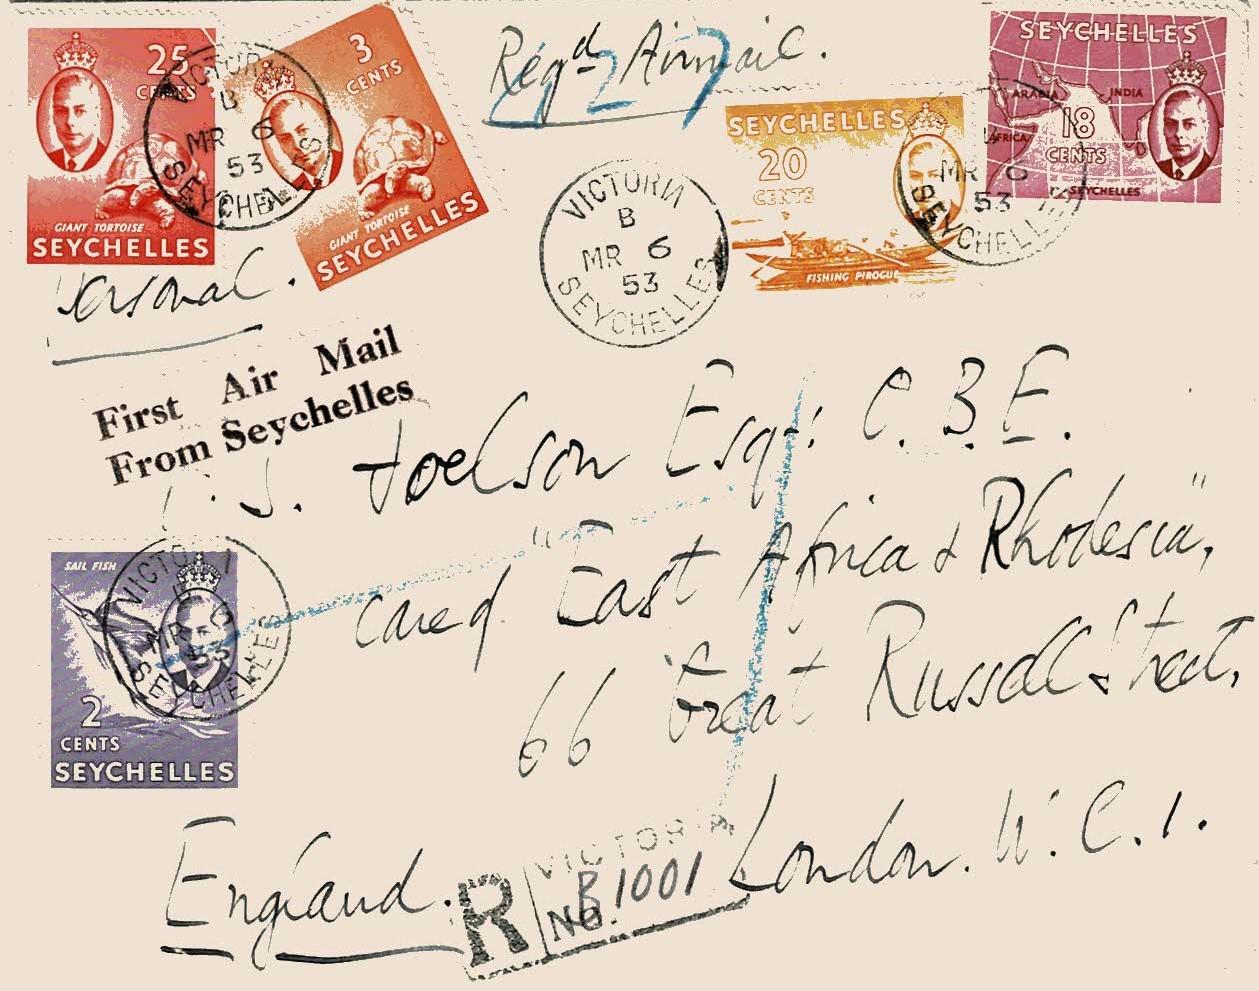 25
CENTS
GIANT TORTOISE
SEYCHELLES
3
CENTS
GIANT TORTOISE
SEYCHELLES
VICTORIA
B
MR 6
53
SEYCHELLES
Regd Airmail.
VICTORIA
B
MR 6
53
SEYCHELLES
SEYCHELLES
20
CENTS
FISHING PIROGUE
SEYCHELLES
ARABIA
INDIA
AFRICA
18
CENTS
SEYCHELLES
MR 6
53
SEYCHELLES
Personal.
First Air Mail
From Seychelles
S. Joelson Esqr: C.B.E.
care of "East Africa & Rhodesia",
66 Great Russell Street,
London. W.C.1.
England.
SAIL FISH
2
CENTS
SEYCHELLES
VICTORIA
MR 6
53
SEYCHELLES
R
VICTORIA
No. B1001